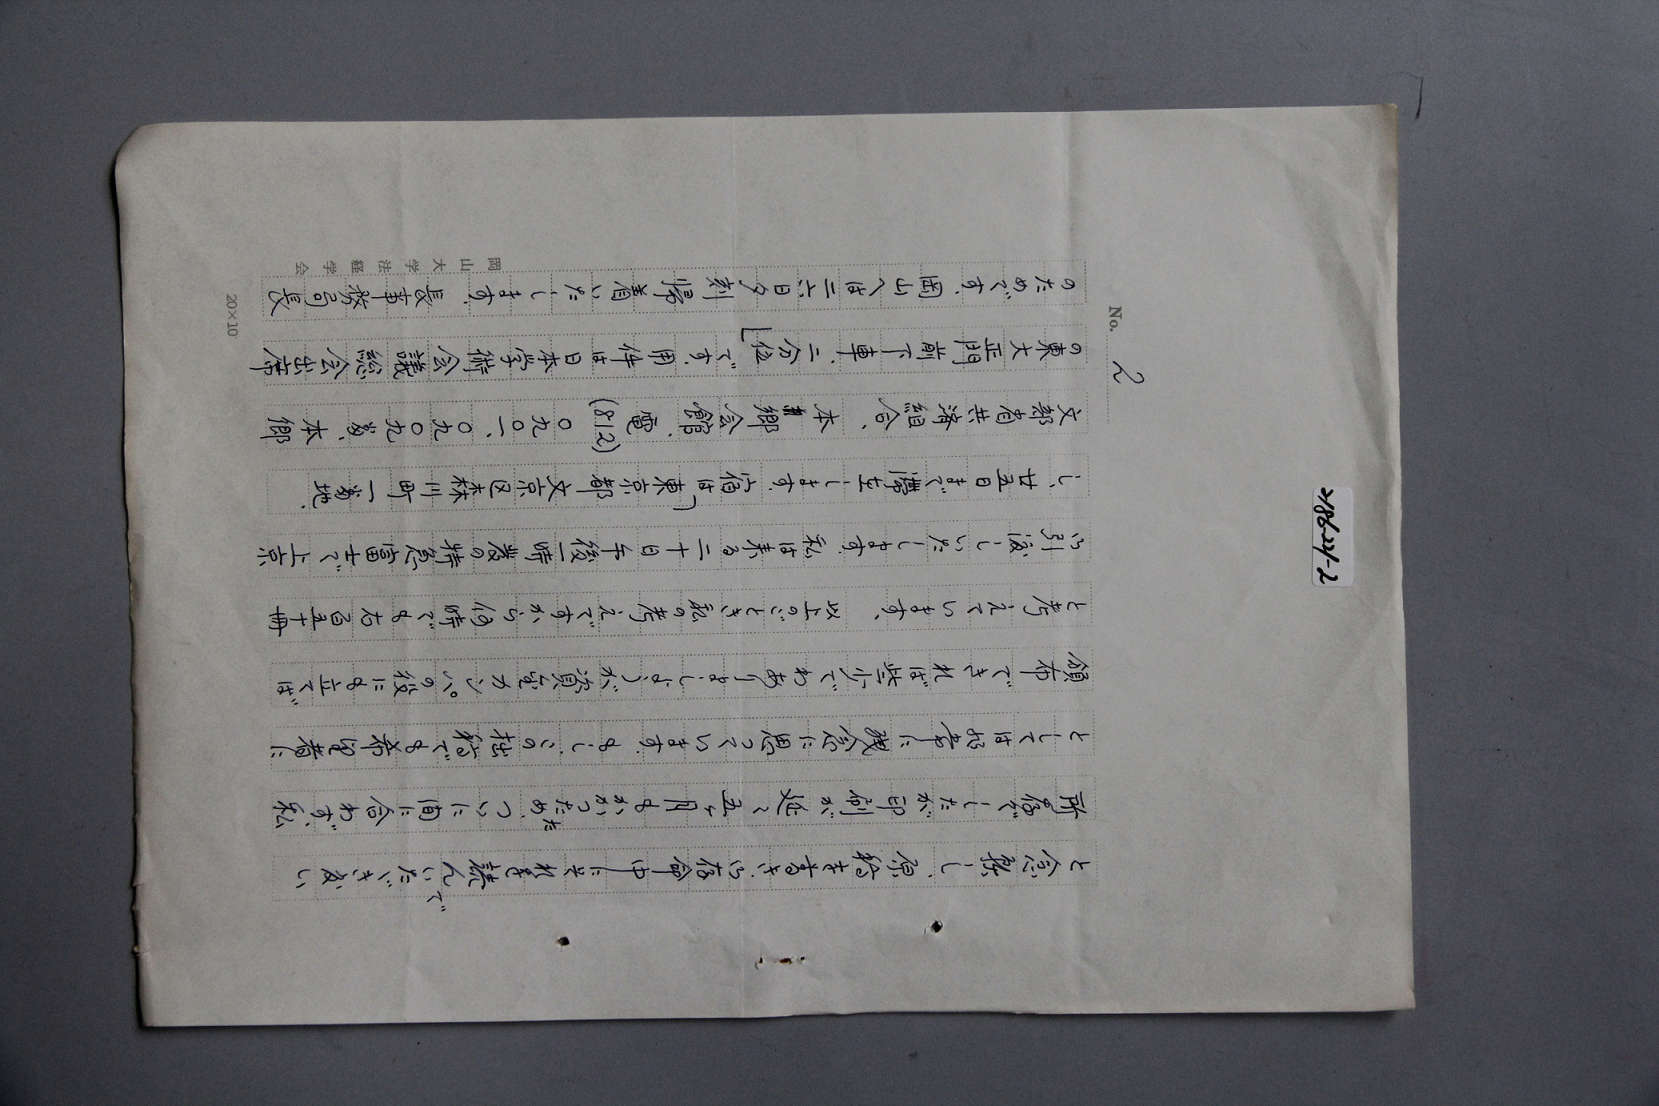 No. 2
と念願し、原稿を書き、御存命中にそれを読んでいただき度い
所存でしたが印刷が延々五ヶ月もかかつたため、ついに間に合わず、私
としては非常に残念に思つています。もし、この拙稿でも希望者に
頒布できれば些少でわありましようが資金カンパの役にも立てば
と考えています。以上のごとき私の考えですから何時でも右百五十冊
御引渡しいたします。私は来る二十日午後一時発の特急富士で上京
し、廿五日まで滞在します。宿は「東京都文京区森川町一番地、
文部省共済組合、本郷会館、電(812)〇九〇一、〇九〇九番、本郷
の東大正門前下車、二分位」です。用件は日本学術会議総会出席
のためです。岡山へは二六日夕刻帰着いたします。
岡山大学法経学会
20×10